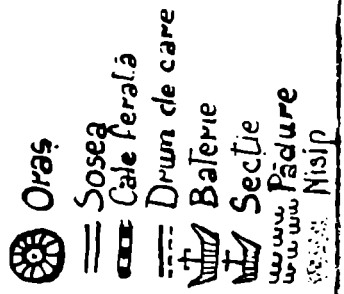 Oraș
Sosea
Cale ferată
Drum de care
Baterie
Secție
Pădure
Nisip